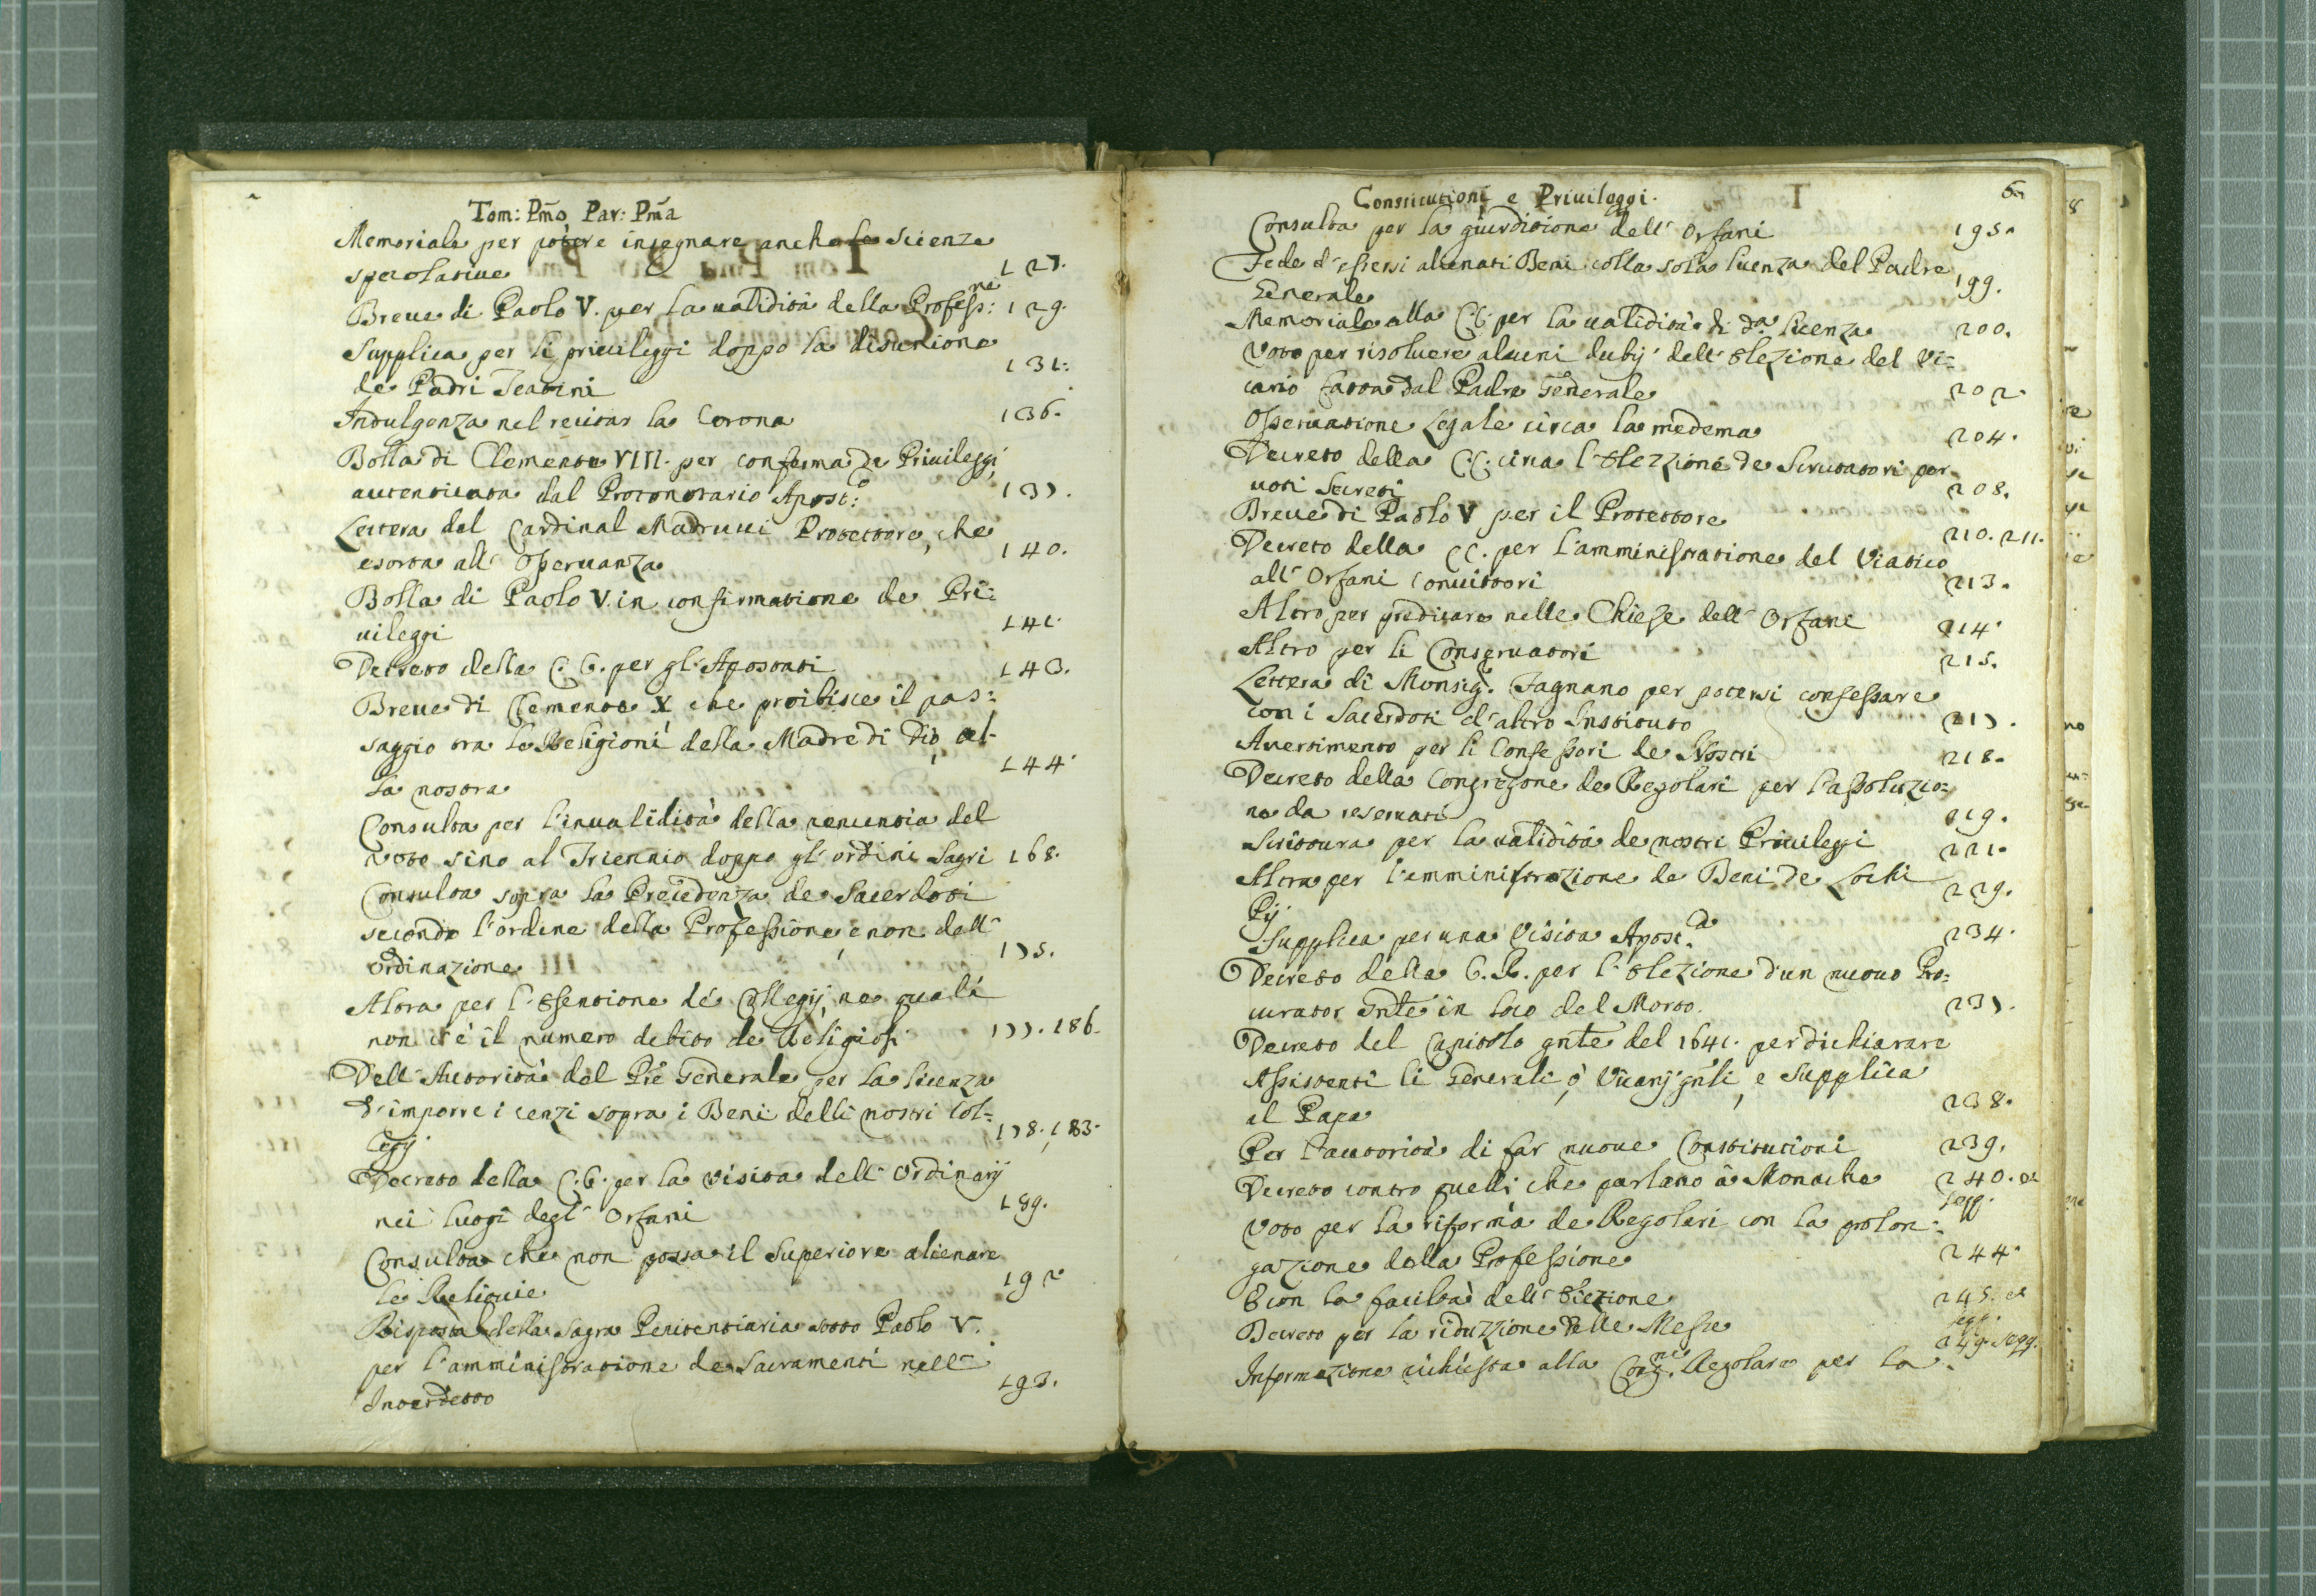 Tom: Pm̃o Par: Pm̃a
Memoriale per potere insegnare anche le scienze
specolatiue 127.
Breue di Paolo V. per la ualidità della Profess:ne 129.
Supplica per li priuileggi doppo la disunione
de Padri Teatini 131.
Indulgenza nel recitar la Corona 136.
Bolla di Clemente VIII. per conferma de Priuileggi
autenticata dal Protonotario Apost:o 137.
Lettera del Cardinal Madrucci Protettore, che
esorta all' osseruanza 140.
Bolla di Paolo V. in confirmatione de Pri:
uileggi 141.
Decreto della C. C. per gl' Apostati 143.
Breue di Clemente X che proibisce il pas:
saggio tra le Religioni della Madre di Dio, al-
la nostra 144.
Consulta per l'inualidità della renuntia del
voto sino al Triennio doppo gl' ordini Sagri 168.
Consulta sopra la Precedenza de Sacerdoti
secondo l'ordine della Professione, e non dell'
ordinazione 175.
Altra per l'Esentione de' Collegij, ne quali
non c'è il numero debito de Religiosi 177. 186.
Dell' Autorità del Prẽ Generale per la licenza
d'imporre i cenzi sopra i Beni delli nostri Col=
legij 178. 183.
Decreto della C. C. per la visita dell' Ordinarij
nei luogi degl' Orfani 189.
Consulta che non possa il Superiore alienare
le Reliquie 192
Risposta della Sagra Penitentiaria sotto Paolo V.
per l'amministratione de Sacramenti nell'
Interdetto 193.
Constitutioni e Priuileggi. 6
Consulta per la giurditione dell' Orfani 195.
Fede d'essersi alienati Beni colla sola licenza del Padre
Generale 199.
Memoriale alla C.C. per la ualidità di d.a licenza 200.
Voto per risoluere alcuni dubij dell' Elezione del Vi=
cario fatta dal Padre Generale 202
Osseruatione legale circa la medema 204.
Decreto della C.C. circa l'Elezzione de Scrutatori per
uoti Secreti 208.
Breue di Paolo V per il Protettore 210. 211.
Decreto della CC. per l'amministratione del Viatico
all' Orfani Conuittori 213.
Altro per predicare nelle Chiese dell' Orfane 214.
Altro per li Conseruatori 215.
Lettera di Monsig.r Fagnano per potersi confessare
con i Sacerdoti d'altro Instituto 217.
Auertimento per li Confessori de Nostri 218.
Decreto della Congregone de Regolari per l'assoluzio=
ne da reseruati 219.
Scrittura per la ualidità de nostri Priuileggi 221.
Altra per l'amministrazione de Beni de Lochi
Pij 229.
Supplica per una Visita Apost.ca 234.
Decreto della C. R. per l'Elezione d'un nuouo Pro=
curator Gñte in loco del Morto. 237.
Decreto del Capitolo gñte del 1641. per dichiarare
Assistenti li Generali, ò Vicarij gñli, e Supplica
al Papa 238.
Per l'autorità di far nuoue Constitutioni 239.
Decreto contro quelli che parlano à Monache 240. et seqq.
Voto per la riforma de Regolari con la prolon=
gazione della Professione 244.
E con la facoltà dell' Elezione 245. et seqq.
Decreto per la riduzzione delle Messe 249. seqq.
Informazione richiesta alla Cong.ne Regolare per la